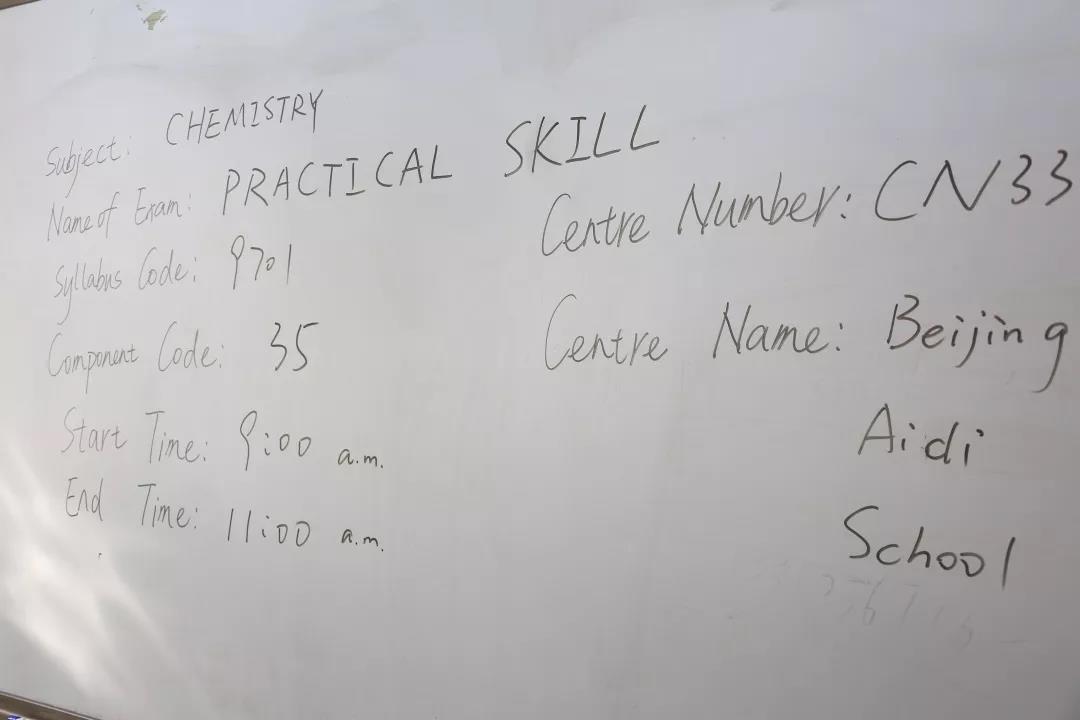 Subject: CHEMISTRY
Name of Exam: PRACTICAL SKILL
Syllabus Code: 9701
Component Code: 35
Start Time: 9:00 a.m.
End Time: 11:00 a.m.
Centre Number: CN33
Centre Name: Beijing
Aidi
School